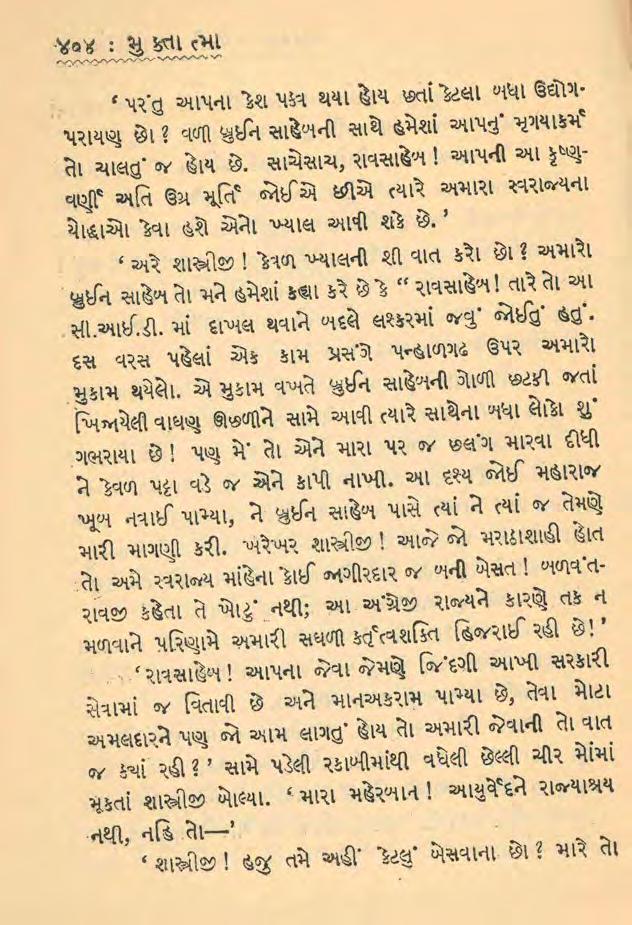 ૪૦૪ : મુક્તાત્મા
‘પરંતુ આપના કેશ પક્વ થયા હોય છતાં કેટલા બધા ઉદ્યોગ-
પરાયણ છો? વળી બ્રુઈન સાહેબની સાથે હમેશાં આપનું મૃગયાકર્મ
તો ચાલતું જ હોય છે. સાચેસાચ, રાવસાહેબ! આપની આ કૃષ્ણ-
વર્ણી અતિ ઉગ્ર મૂર્તિ જોઈએ છીએ ત્યારે અમારા સ્વરાજ્યના
યોદ્ધાઓ કેવા હશે એનો ખ્યાલ આવી શકે છે.’
‘અરે શાસ્ત્રીજી! કેવળ ખ્યાલની શી વાત કરો છો? અમારો
બ્રુઈન સાહેબ તો મને હમેશાં કહ્યા કરે છે કે “રાવસાહેબ! તારે તો આ
સી.આઈ.ડી. માં દાખલ થવાને બદલે લશ્કરમાં જવું જોઈતું હતું.
દસ વરસ પહેલાં એક કામ પ્રસંગે પન્હાળગઢ ઉપર અમારો
મુકામ થયેલો. એ મુકામ વખતે બ્રુઈન સાહેબની ગોળી છટકી જતાં
ખિજાયેલી વાઘણ ઊછળીને સામે આવી ત્યારે સાથેના બધા લોકો શું
ગભરાયા છે! પણ મેં તો એને મારા પર જ છલંગ મારવા દીધી
ને કેવળ પટ્ટા વડે જ એને કાપી નાખી. આ દૃશ્ય જોઈ મહારાજ
ખૂબ નવાઈ પામ્યા, ને બ્રુઈન સાહેબ પાસે ત્યાં ને ત્યાં જ તેમણે
મારી માગણી કરી. ખરેખર શાસ્ત્રીજી! આજે જો મરાઠાશાહી હોત
તો અમે સ્વરાજ્ય માંહેના કોઈ જાગીરદાર જ બની બેસત! બળવંત-
રાવજી કહેતા તે ખોટું નથી; આ અંગ્રેજી રાજ્યને કારણે તક ન
મળવાને પરિણામે અમારી સઘળી કર્તૃત્વશક્તિ હિજરાઈ રહી છે!’
‘રાવસાહેબ! આપના જેવા જેમણે જિંદગી આખી સરકારી
સેવામાં જ વિતાવી છે અને માનઅકરામ પામ્યા છે, તેવા મોટા
અમલદારને પણ જો આમ લાગતું હોય તો અમારી જેવાની તો વાત
જ ક્યાં રહી?’ સામે પડેલી રકાબીમાંથી વધેલી છેલ્લી ચીર મોંમાં
મૂકતાં શાસ્ત્રીજી બોલ્યા. ‘મારા મહેરબાન! આયુર્વેદને રાજ્યાશ્રય
નથી, નહિ તો—’
‘શાસ્ત્રીજી! હજુ તમે અહીં કેટલું બેસવાના છો? મારે તો